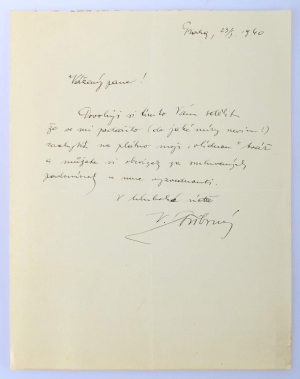 Praha, 23/3 1940
Vážený pane!
Dovoluji si tímto Vám sdělit
že se mi podařilo (do jaké míry nevím!)
zachytit na plátno moji
a můžete si obrázek za smluvených
podmínek u mne vyzvednouti.
V úctě
V.